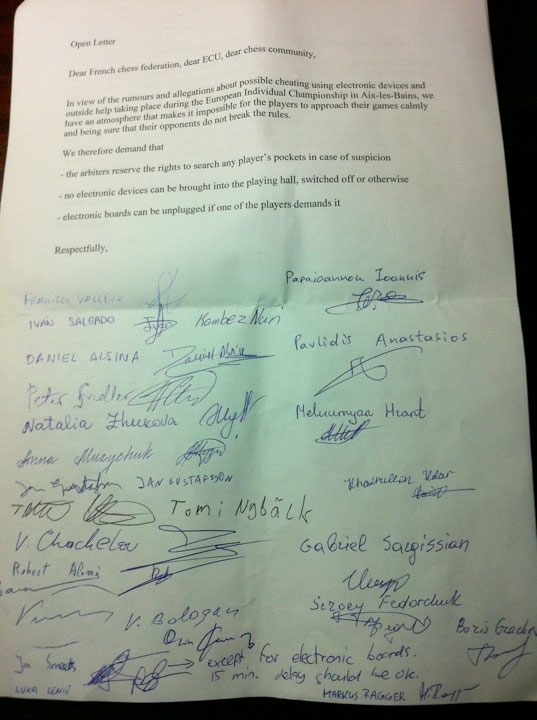 Open Letter
Dear French chess federation, dear ECU, dear chess community,
In view of the rumours and allegations about possible cheating using electronic devices and
outside help taking place during the European Individual Championship in Aix-les-Bains, we
have an atmosphere that makes it impossible for the players to approach their games calmly
and being sure that their opponents do not break the rules.
We therefore demand that
- the arbiters reserve the rights to search any player's pockets in case of suspicion
- no electronic devices can be brought into the playing hall, switched off or otherwise
- electronic boards can be unplugged if one of the players demands it
Respectfully,
Papaioannou Ioannis
FRANCISCO VALLEJO
IVAN SALGADO
Kambez Nuri
Pavlidis Anastasios
DANIEL ALSINA
Peter Svidler
Natalia Zhukova
Melkumyan Hrant
Anna Muzychuk
JAN GUSTAFSSON
Khairullin Ildar
Tomi Nybäck
V. Chuchelov
Gabriel Sargissian
Robert
Sergey Fedorchuk
V. Bologan
Boris
Jan Smeets
except for electronic boards.
15 min. delay should be ok.
LUKA LENIČ
MARKUS RAGGER